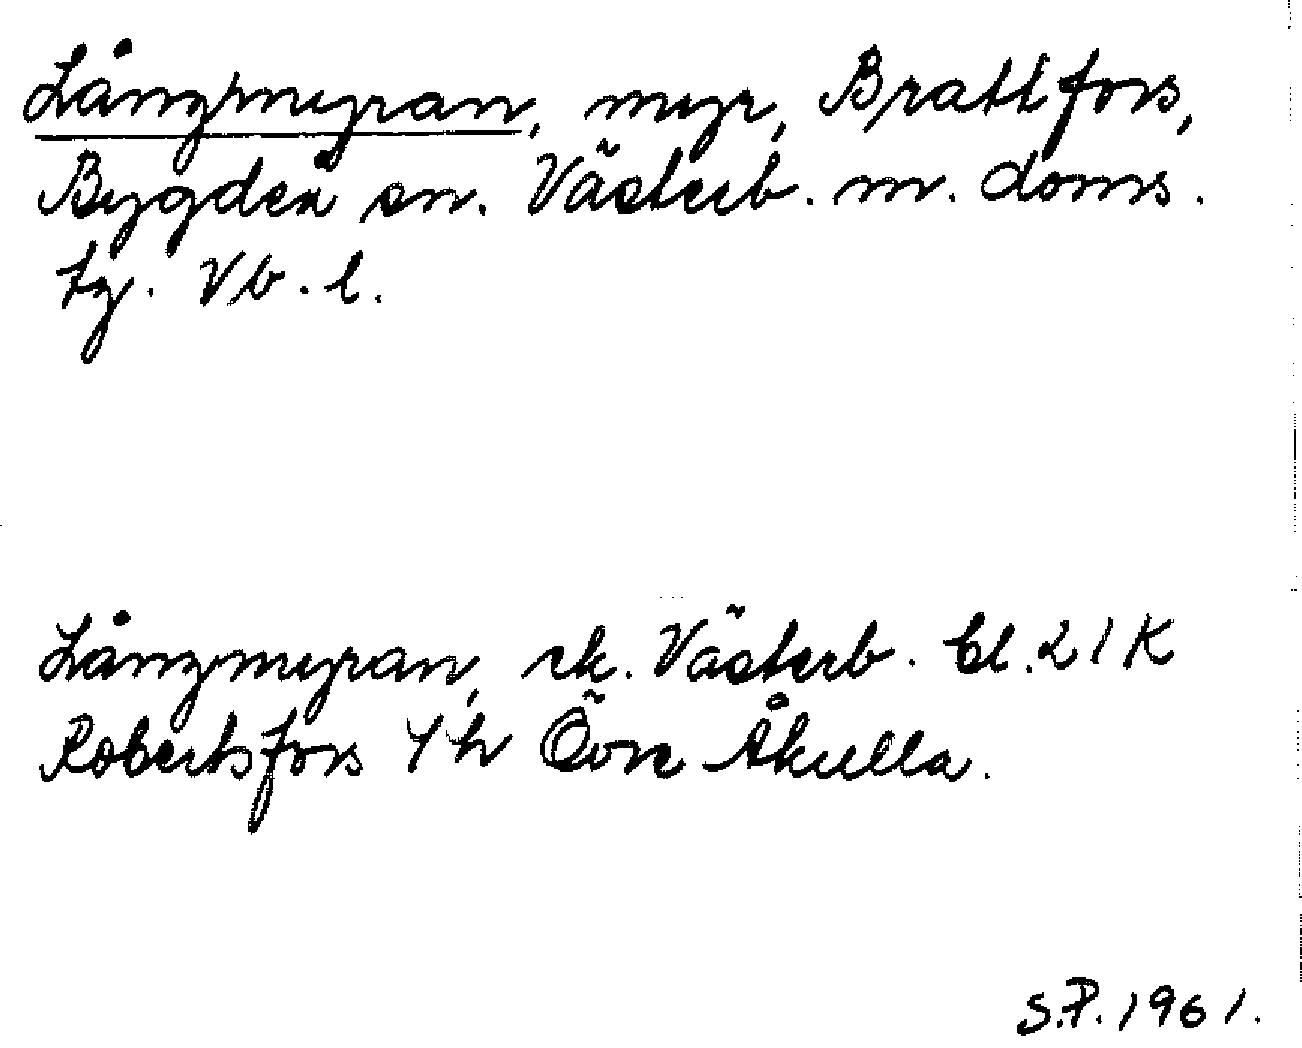 Långmyran, myr, Brattfors,
Bygdeå sn. Västerb. m. doms.
tg. Vb. l.
Långmyran, ek. Västerb. bl. 21 K
Robertsfors 4 h Övre Åkulla.
S.P. 1961.